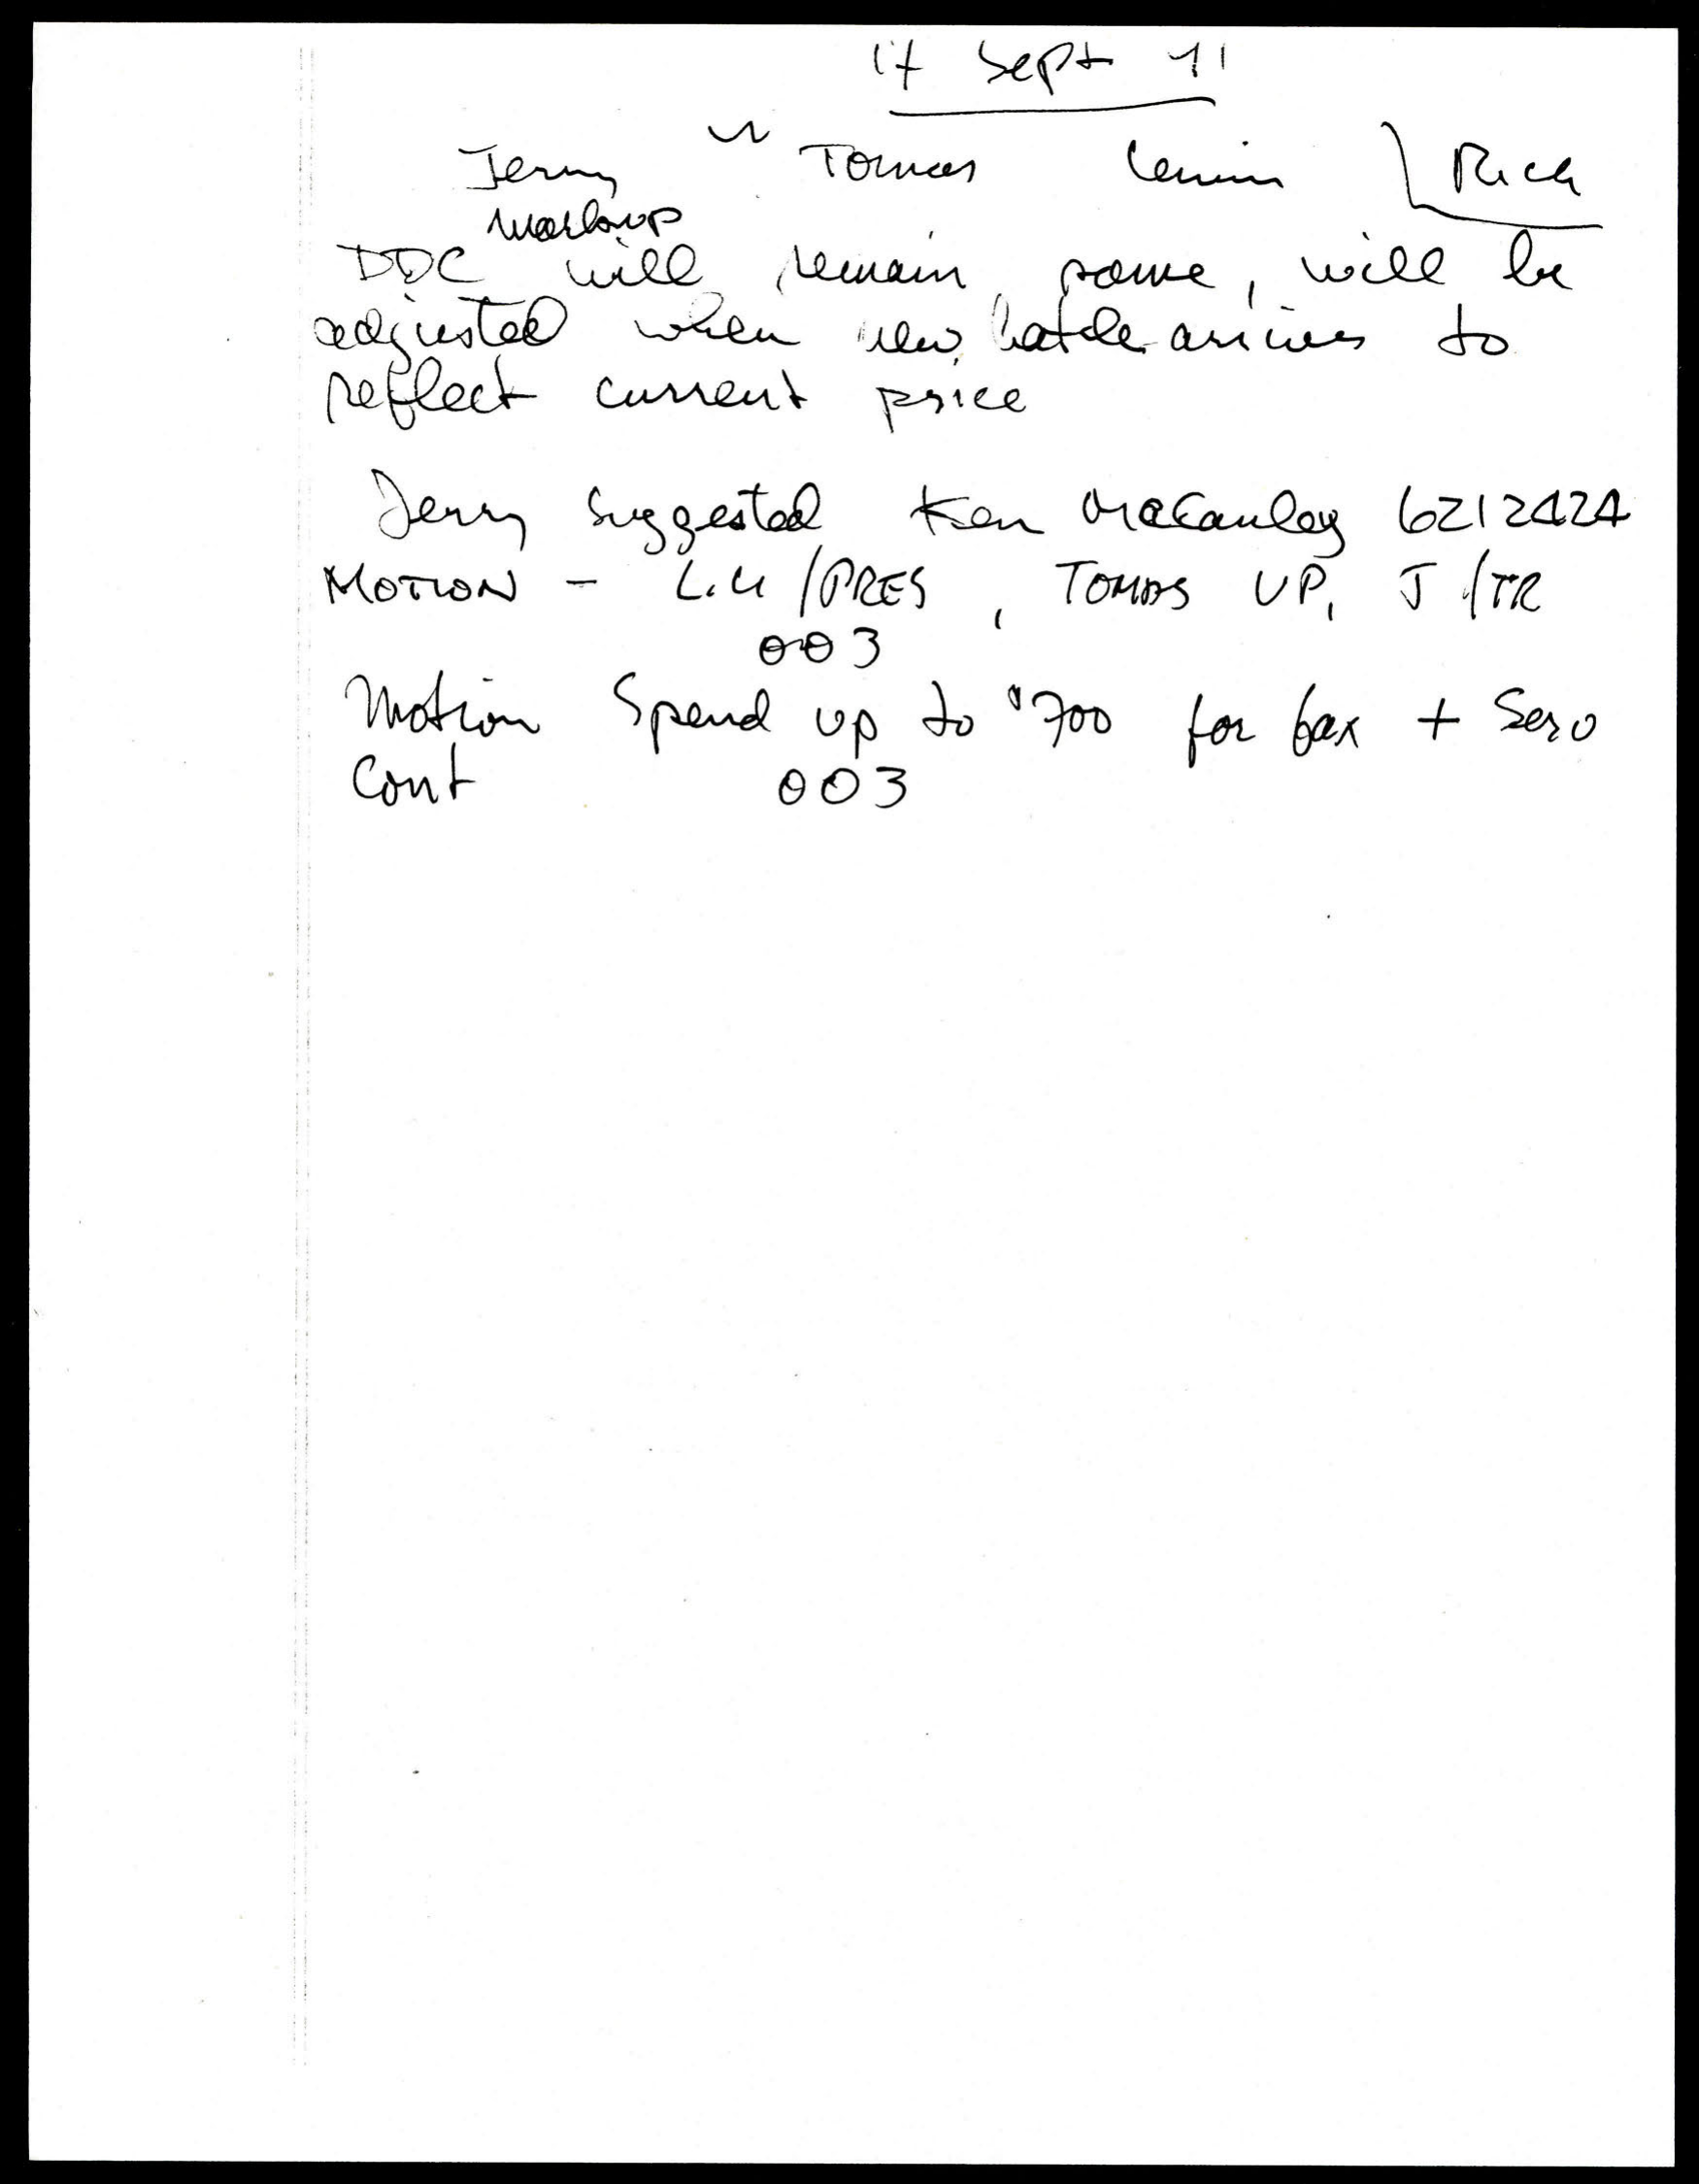 17 Sept 91
Jerry Tomas Lenin Rich
markup
DDC will remain same, will be
adjusted when new batch arrives to
reflect current price
Jerry suggested Ken McCauley 6212424
MOTION - L.M/PRES, TOMAS VP, J/TR
003
Motion Spend up to $700 for fax + Sero
Cont 003